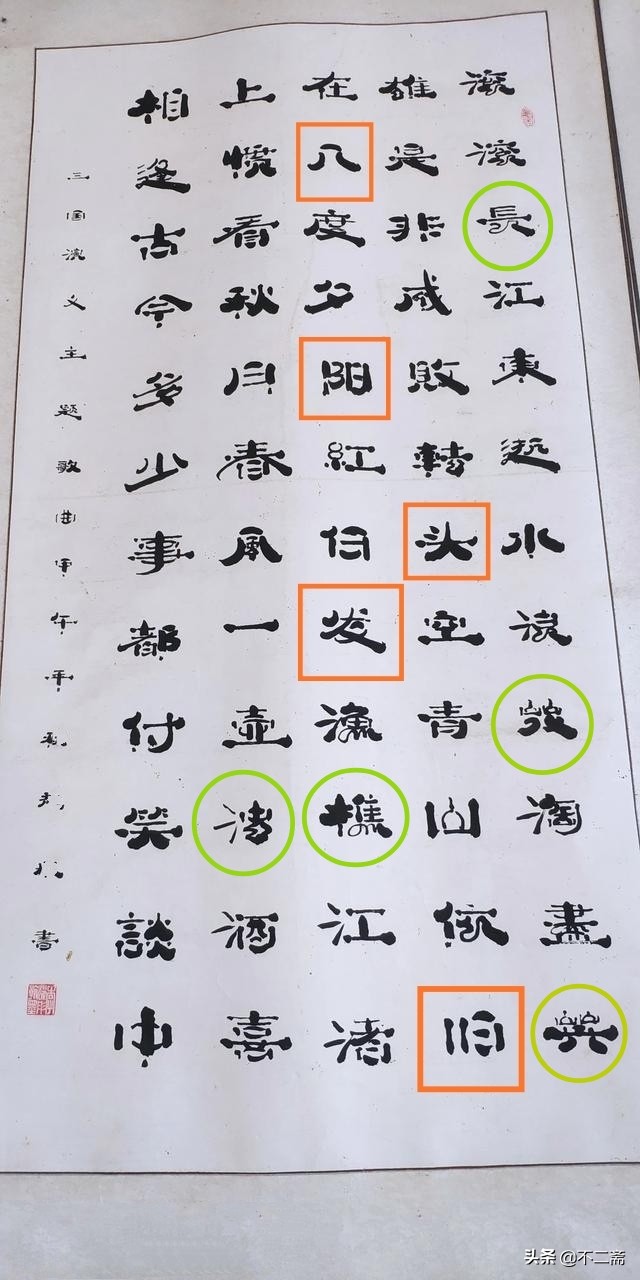 滚滚長江東逝水浪花淘盡英
雄是非成敗轉头空青山依旧
在几度夕阳紅白发漁樵江渚
上慣看秋月春風一壺浊酒喜
相逢古今多少事都付笑談中
三国演义主题歌曲午年書
头条 @不二斋